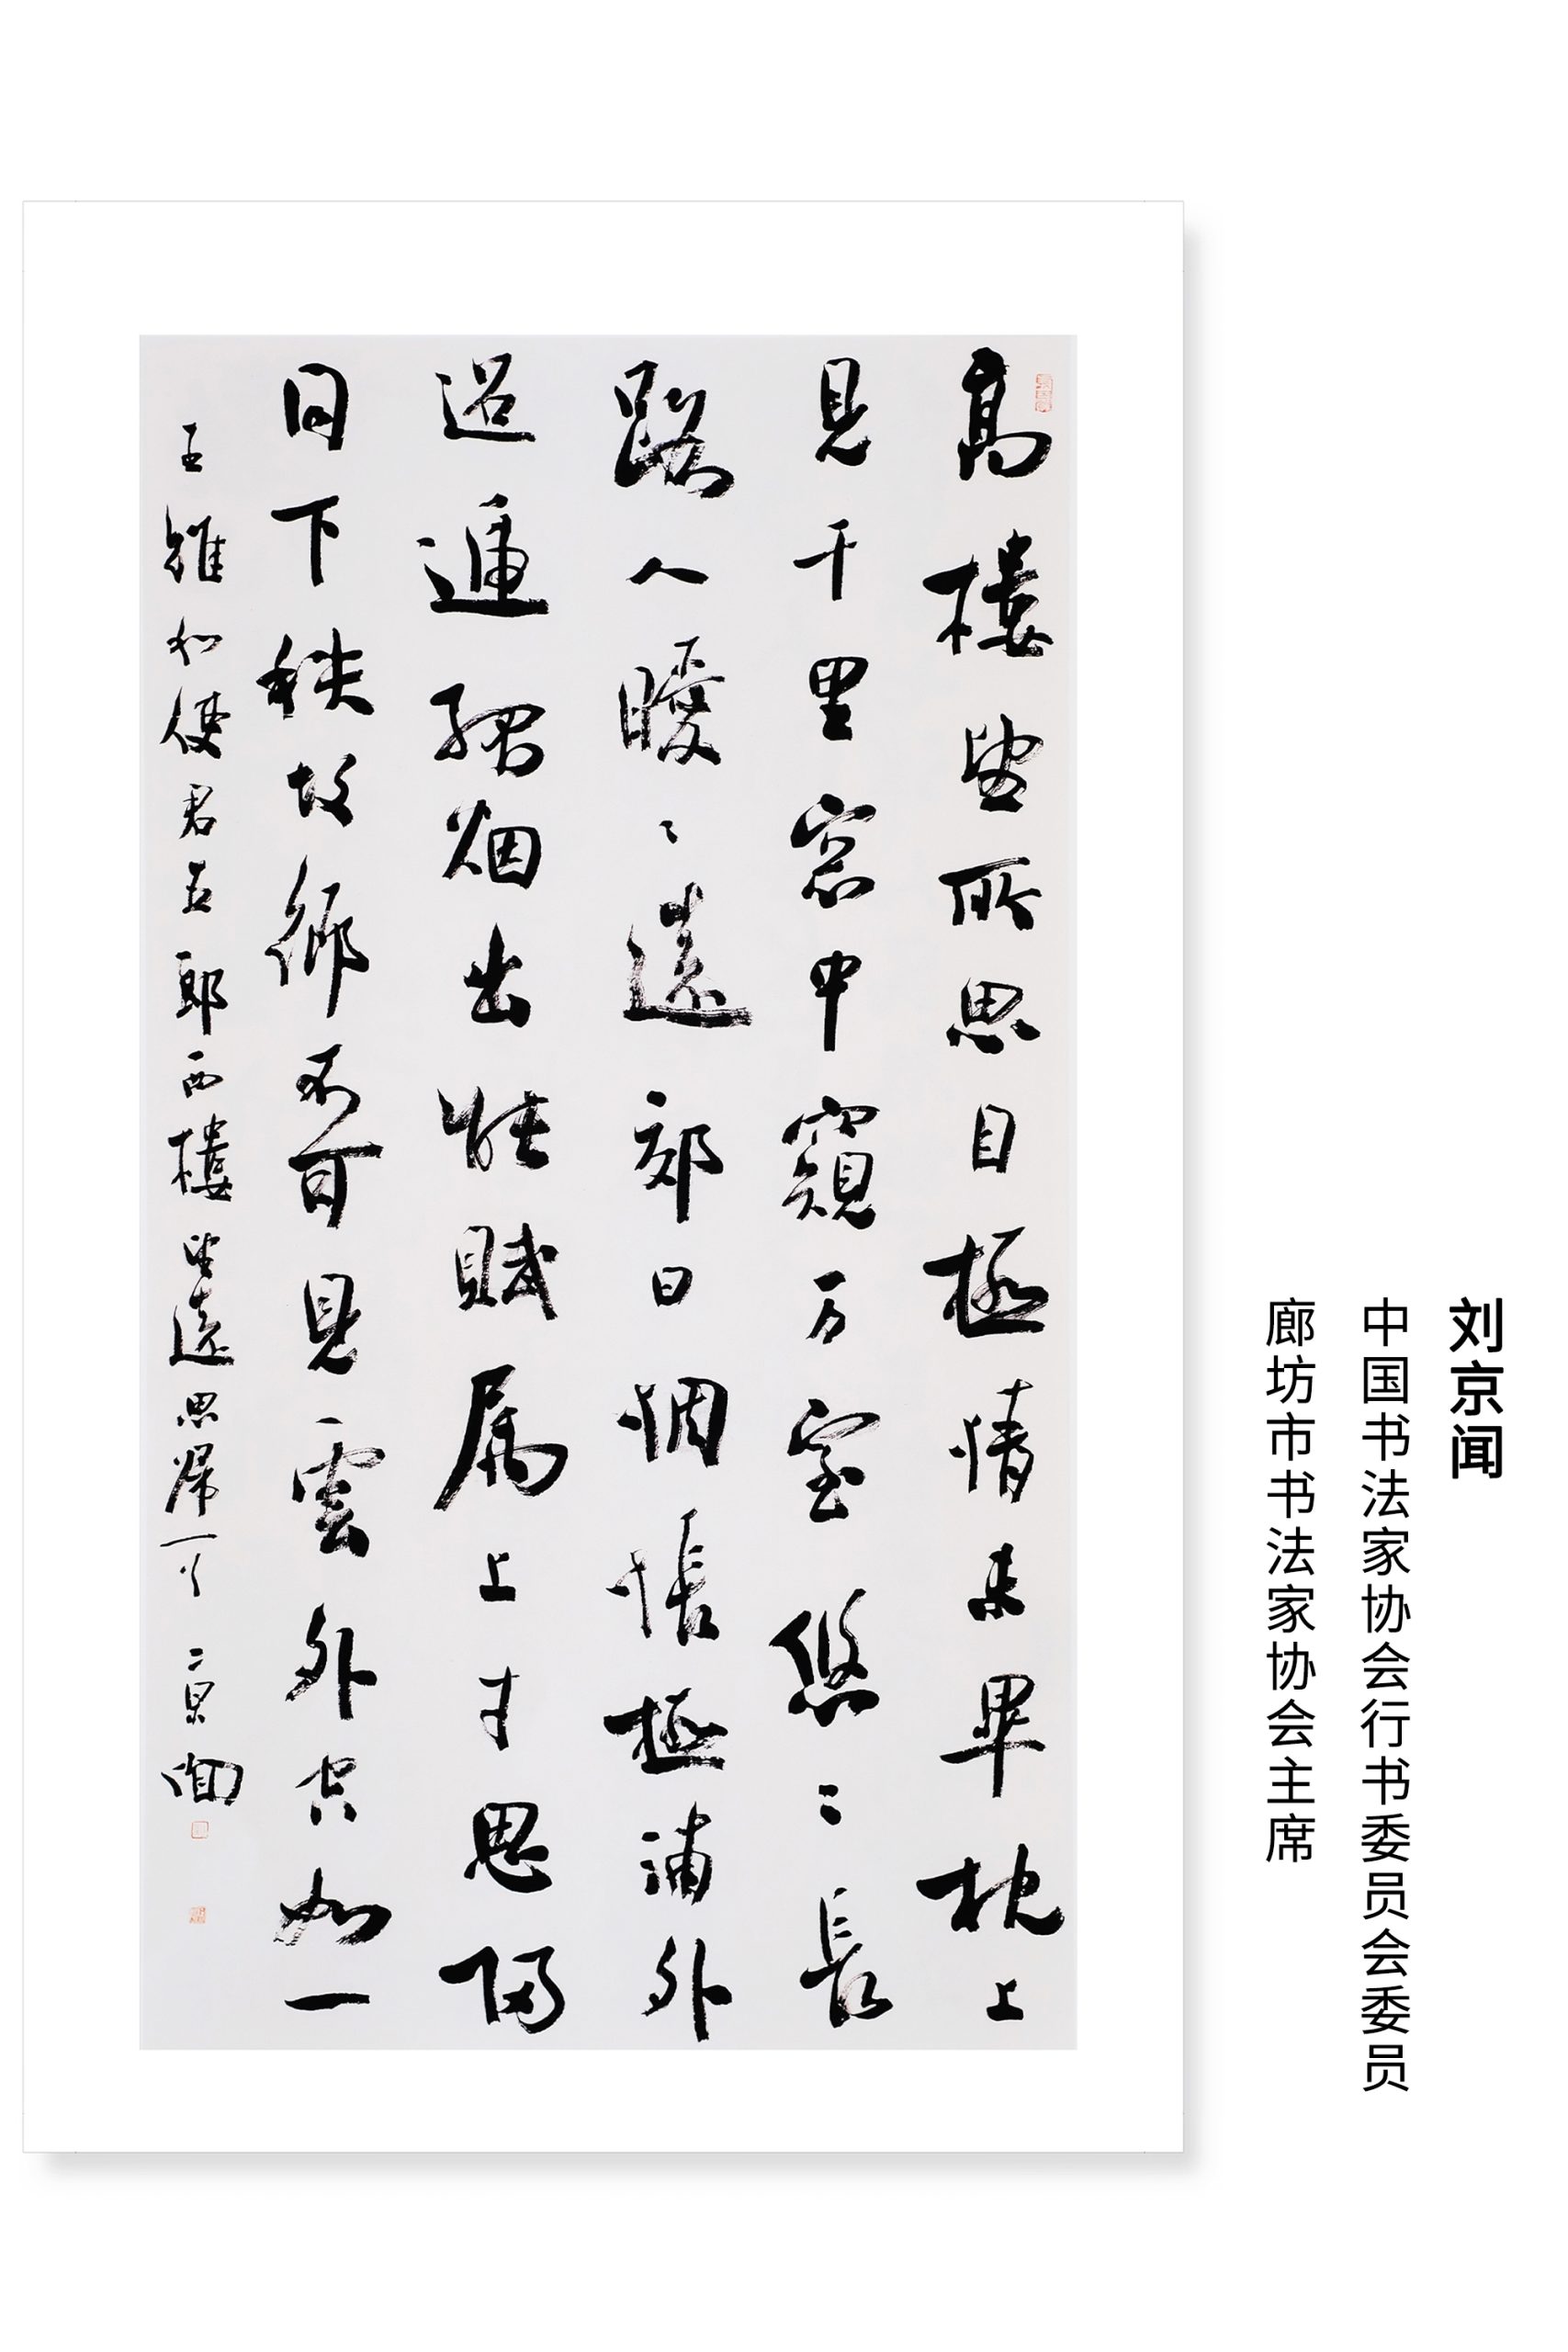 高樓望所思目極情未畢枕上
見千里窓中窺万室悠〻長
路人曖〻遠郊日惆悵極浦外
迢遞孤烟出能賦属上才思歸
同下秩故鄉不可見雲外空如一
王維和使君五郎西樓望遠思歸一首 京闻
刘京闻
中国书法家协会行书委员会委员
廊坊市书法家协会主席